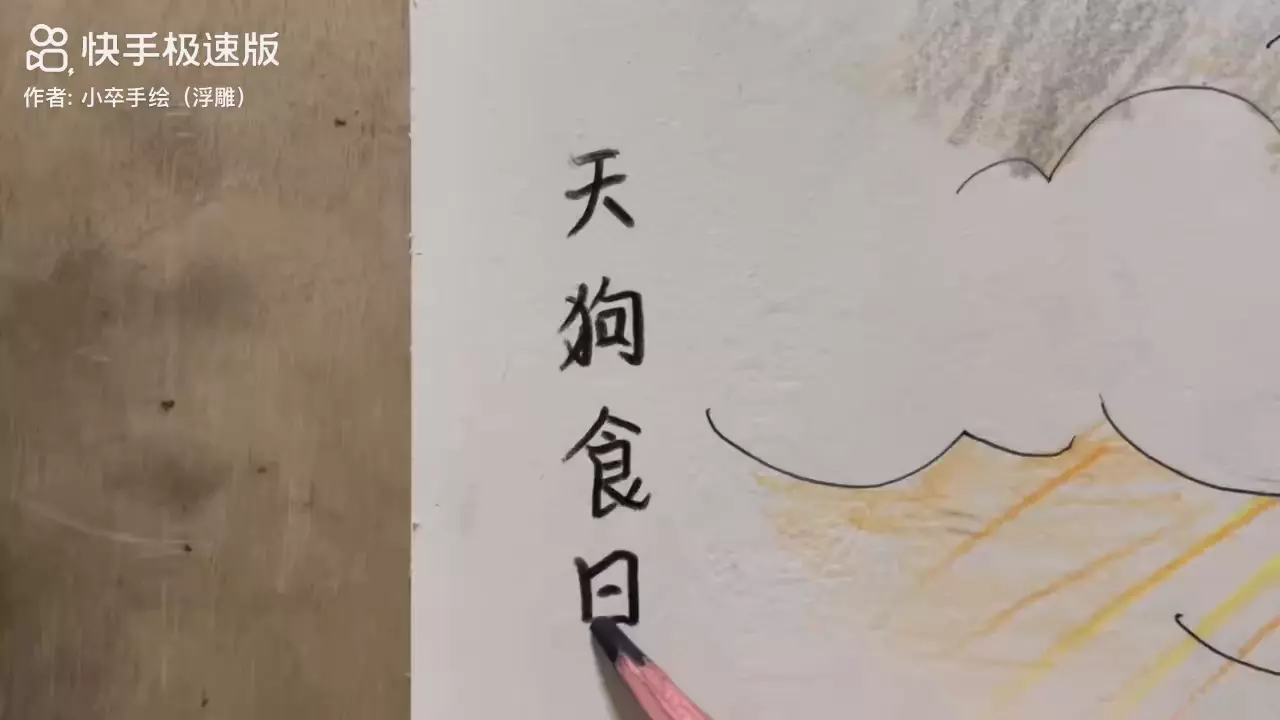 快手极速版
作者: 小卒手绘（浮雕）
天狗食日